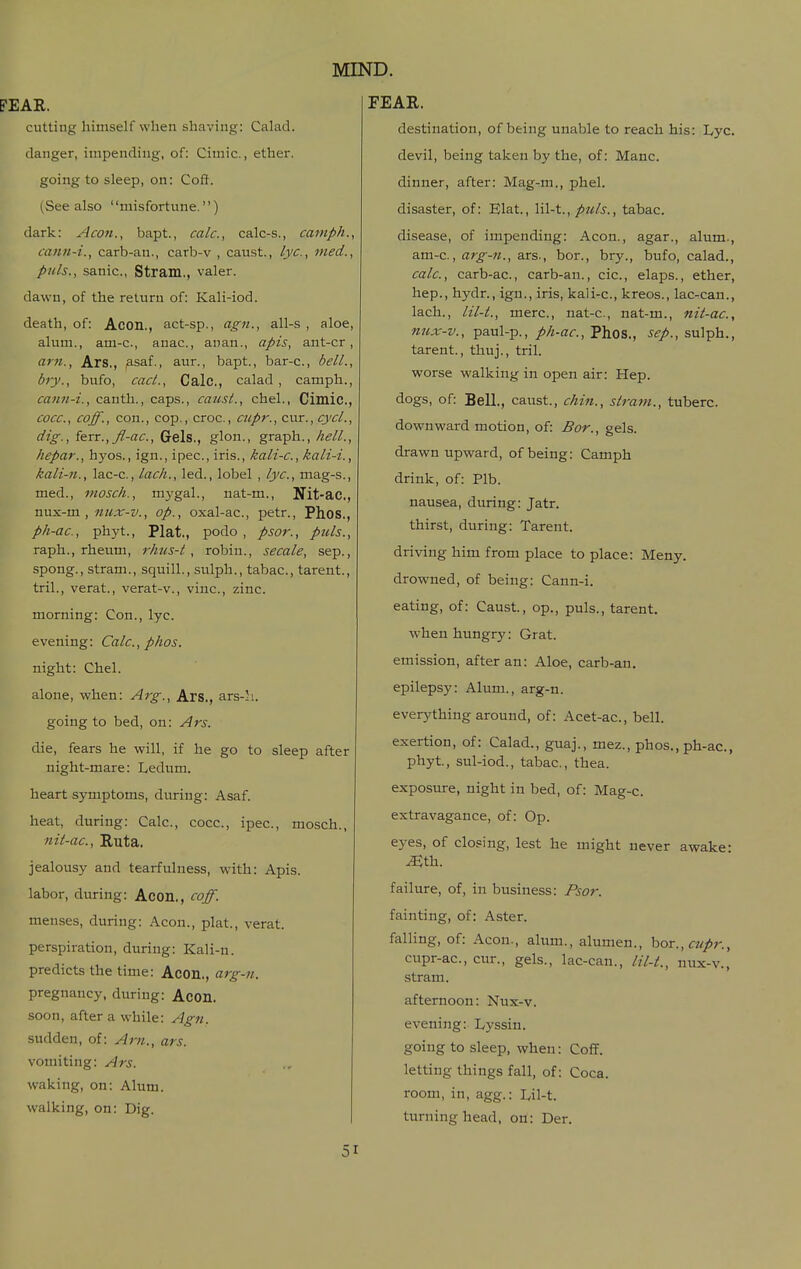 MIND.
FEAR.
cutting himself when shaving: Calad.
danger, impending, of: Cimic., ether.
going to sleep, on: Coff.
(See also "misfortune.")
dark: Acon., bapt., calc., calc-s., camph.,
cann-i., carb-an., carb-v , caust., lyc., med.,
puls., sanic., Stram., valer.
dawn, of the return of: Kali-iod.
death, of: Acon., act-sp., agn., all-s , aloe,
alum., am-c., anac., anan., apis, ant-cr ,
arn., Ars., asaf., aur., bapt., bar-c., bell.,
bry., bufo, cact., Calc., calad , camph.,
cann-i., canth., caps., caust., chel., Cimic.,
cocc., coff., con., cop., croc., cupr., cur., cycl.,
dig., ferr., fl-ac., Gels., glon., graph., hell.,
hepar., hyos., ign., ipec., iris., kali-c., kali-i.,
kali-n., lac-c., lach., led., lobel , lyc., mag-s.,
med., mosch., mygal., nat-m., Nit-ac.,
nux-m , nux-v., op., oxal-ac., petr., Phos.,
ph-ac., phyt., Plat., podo , psor., puls.,
raph., rheum, rhus-t , robin., secale, sep.,
spong., stram., squill., sulph., tabac., tarent.,
tril., verat., verat-v., vinc., zinc.
morning: Con., lyc.
evening: Calc., phos.
night: Chel.
alone, when: Arg., Ars., ars-h.
going to bed, on: Ars.
die, fears he will, if he go to sleep after
night-mare: Ledum.
heart symptoms, during: Asaf.
heat, during: Calc., cocc., ipec., mosch.,
nit-ac., Ruta.
jealousy and tearfulness, with: Apis.
labor, during: Acon., coff.
menses, during: Acon., plat., verat.
perspiration, during: Kali-n.
predicts the time: Acon., arg-n.
pregnancy, during: Acon.
soon, after a while: Agn.
sudden, of: Arn., ars.
vomiting: Ars.
waking, on: Alum.
walking, on: Dig.
FEAR.
destination, of being unable to reach his: Lyc.
devil, being taken by the, of: Manc.
dinner, after: Mag-m., phel.
disaster, of: Elat., lil-t., puls., tabac.
disease, of impending: Acon., agar., alum.,
am-c., arg-n., ars., bor., bry., bufo, calad.,
calc., carb-ac., carb-an., cic., elaps., ether,
hep., hydr., ign., iris, kali-c., kreos., lac-can.,
lach., lil-t., merc., nat-c., nat-m., nit-ac.,
nux-v., paul-p., ph-ac., Phos., sep., sulph.,
tarent., thuj., tril.
worse walking in open air: Hep.
dogs, of: Bell., caust., chin., stram., tuberc.
downward motion, of: Bor., gels.
drawn upward, of being: Camph
drink, of: Plb.
nausea, during: Jatr.
thirst, during: Tarent.
driving him from place to place: Meny.
drowned, of being: Cann-i.
eating, of: Caust., op., puls., tarent.
when hungry: Grat.
emission, after an: Aloe, carb-an.
epilepsy: Alum., arg-n.
everything around, of: Acet-ac., bell.
exertion, of: Calad., guaj., mez., phos., ph-ac.,
phyt., sul-iod., tabac., thea.
exposure, night in bed, of: Mag-c.
extravagance, of: Op.
eyes, of closing, lest he might never awake:
Æth.
failure, of, in business: Psor.
fainting, of: Aster.
falling, of: Acon., alum., alumen., bor., cupr.,
cupr-ac., cur., gels., lac-can., lil-t., nux-v.,
stram.
afternoon: Nux-v.
evening: Lyssin.
going to sleep, when: Coff.
letting things fall, of: Coca.
room, in, agg.: Lil-t.
turning head, on: Der.
51